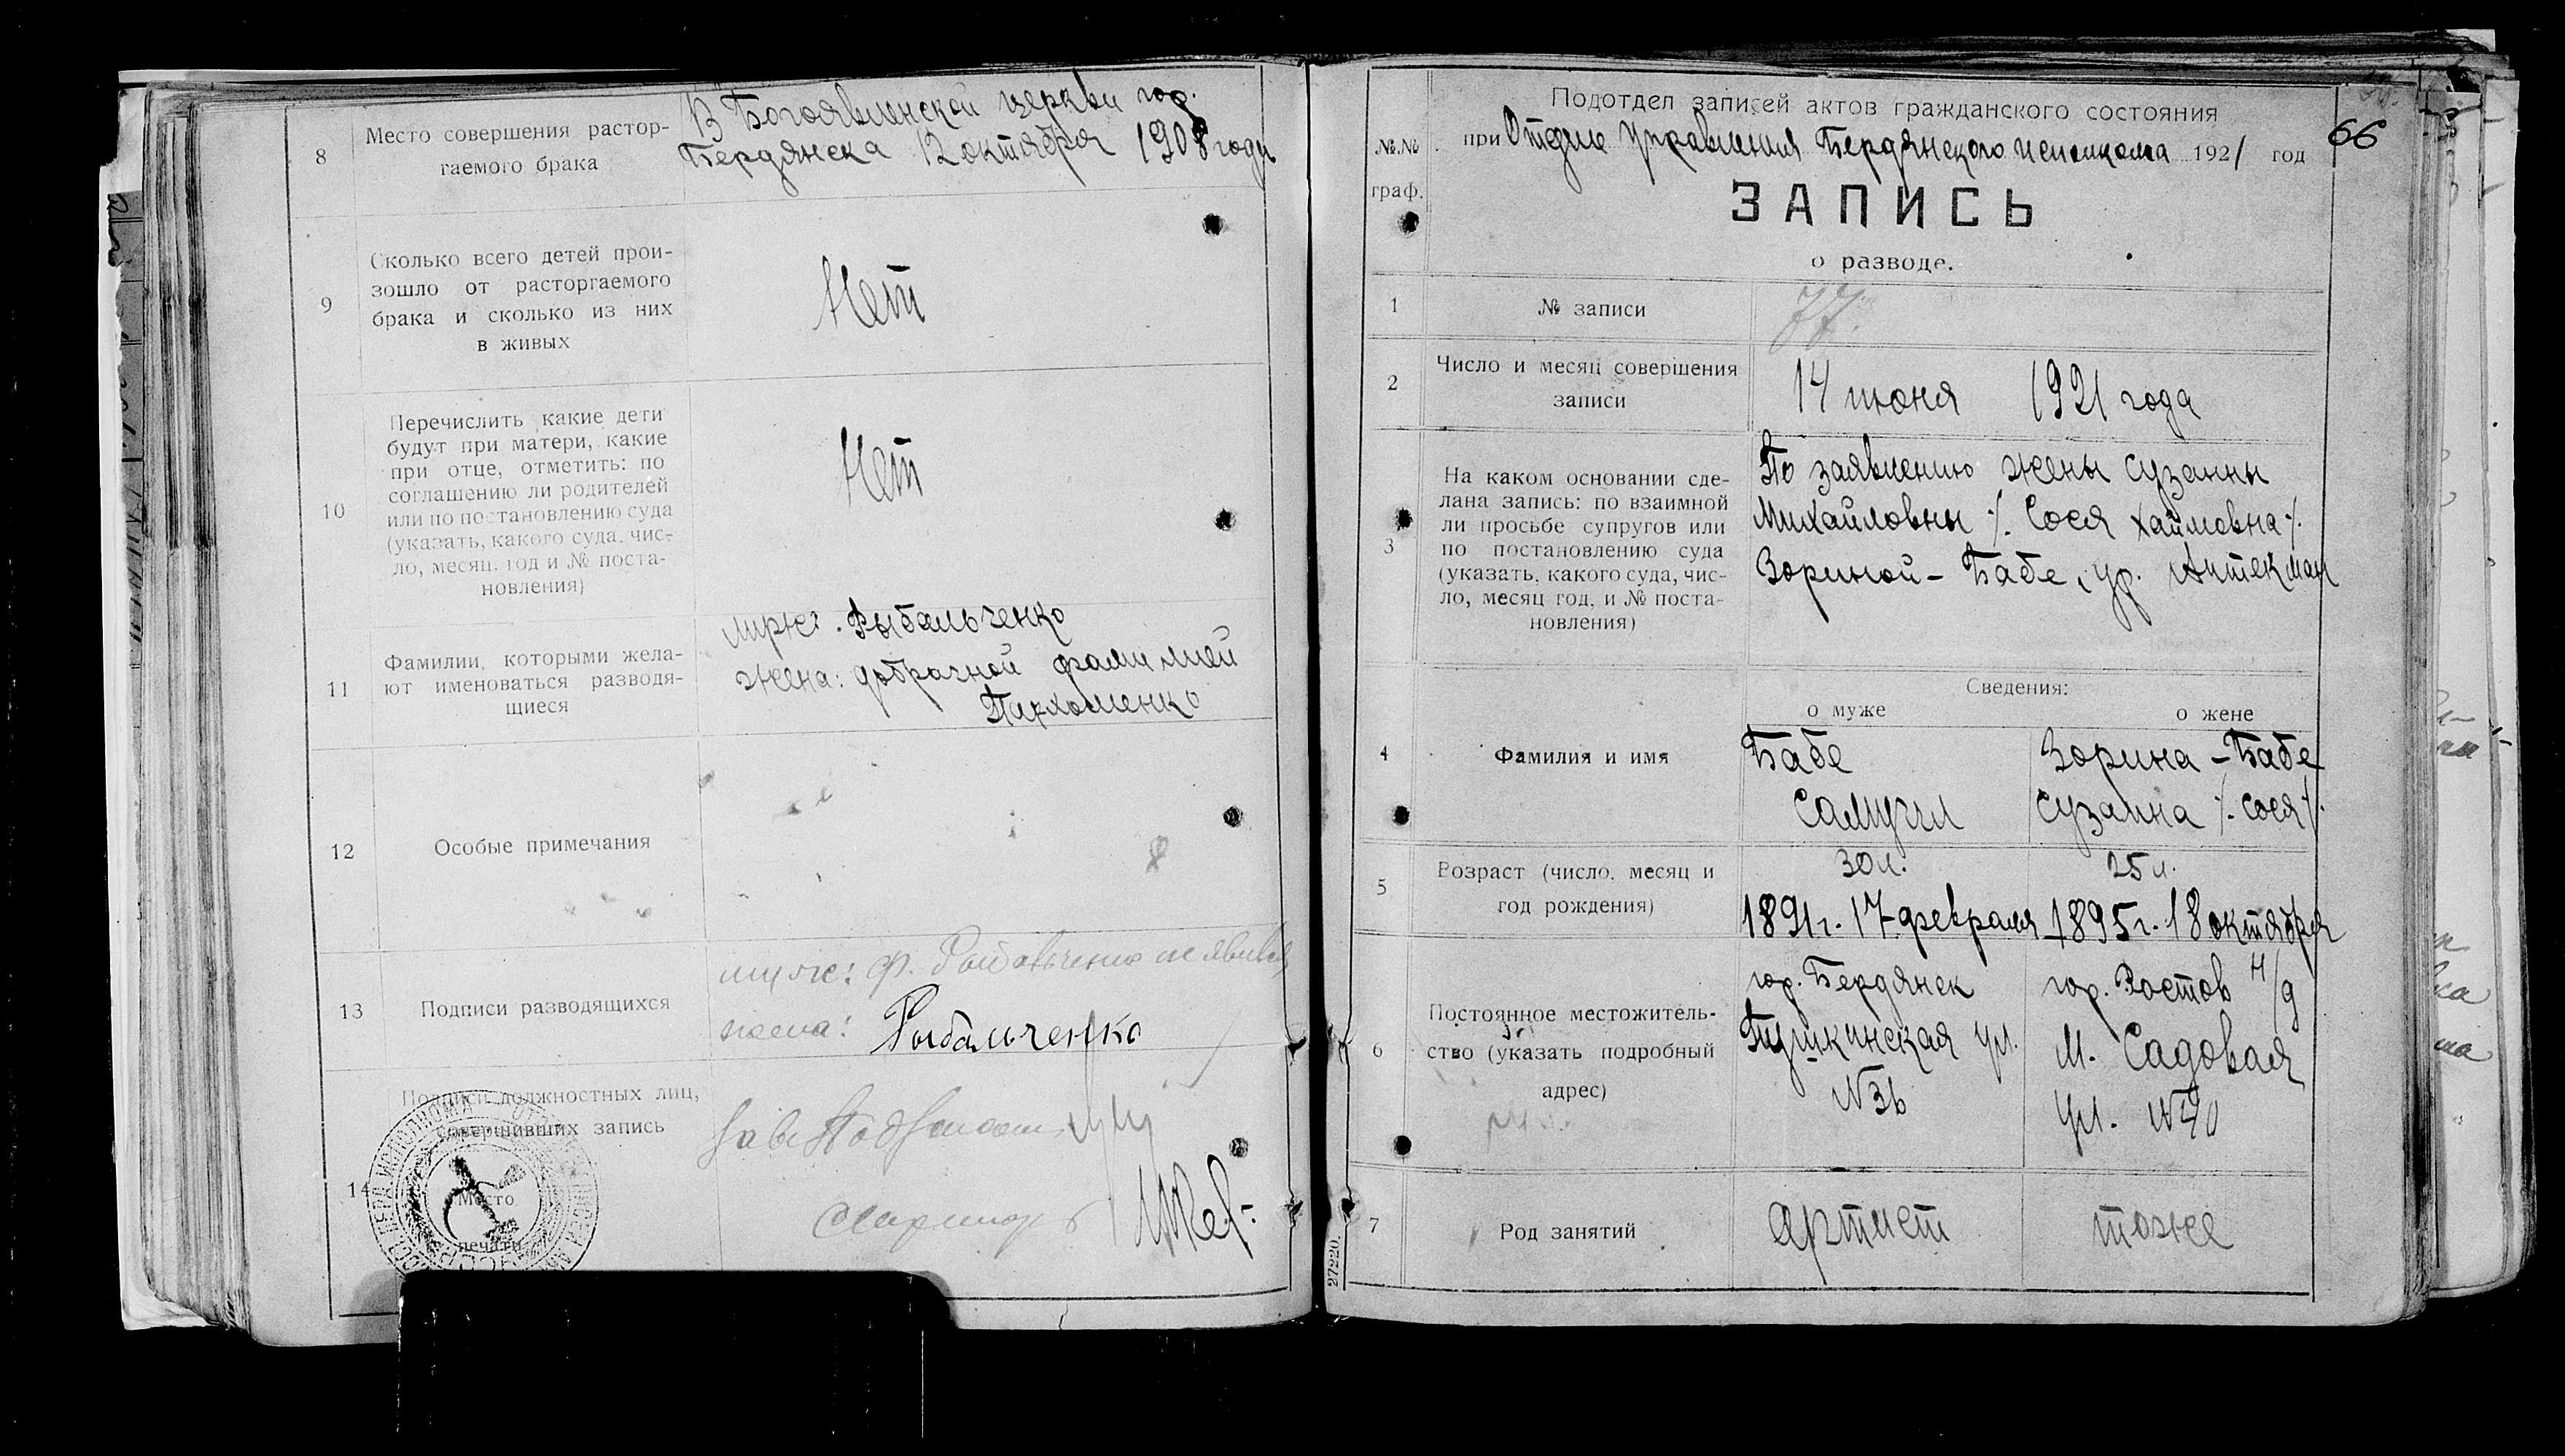 8
Место совершения растор-
гаемого брака
В Богоявленской церкви гор.
Бердянска 12 октября 1908 года
9
Сколько всего детей прои-
зошло от расторгаемого
брака и сколько из них
в живых
Нет
10
Перечислить какие дети
будут при матери, какие
при отце, отметить: по
соглашению ли родителей
или по постановлению суда
(указать, какого суда, чис-
ло, месяц, год и № поста-
новления)
Нет
11
Фамилии, которыми жела-
ют именоваться разводя-
щиеся
Муже: Рыбальченко
Жена: добрачной фамилией
Пархоменко
12
Особые примечания
13
Подписи разводящихся
муже: Ф. Рыбальченко не явился
жена: Рыбальченко
14
Подписи должностных лиц,
совершивших запись
Место
печати
Зав.
66
№№
граф.
Подотдел записей актов гражданского состояния
при Отделе Управления Бердянского исполкома 1921 год
ЗАПИСЬ
о разводе.
1
№ записи
77.
2
Число и месяц совершения
записи
14 июня 1921 года
3
На каком основании сде-
лана запись: по взаимной
ли просьбе супругов или
по постановлению суда
(указать, какого суда, чис-
ло, месяц год, и № поста-
новления)
По заявлению жены Сузанны
Михайловны ·/. Сося Хаймовна ·/.
Зориной - Бабе, ур. Аптекман
Сведения:
о муже
о жене
4
Фамилия и имя
Бабе
Самуил
Зорина - Бабе
Сузанна ·/. Сося ·/.
5
Возраст (число, месяц и
год рождения)
30 л.
1891 г. 17 февраля
25 л.
1895 г. 18 октября
6
Постоянное местожитель-
ство (указать подробный
адрес)
гор. Бердянск
Пушкинская ул.
№36
гор. Ростов н/д
М. Садовая
ул. №40
7
Род занятий
артист
тоже
27220.